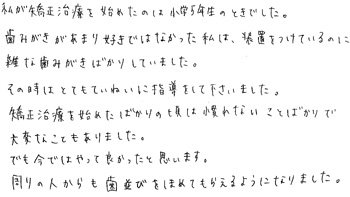 私が矯正治療を始めたのは小学5年生のときでした。
歯みがきがあまり好きではなかった私は、装置をつけているのに
雑な歯みがきばかりしていました。
その時はとてもていねいに指導をして下さいました。
矯正治療を始めたばかりの頃は慣れないことばかりで
大変なこともありました。
でも今ではやって良かったと思います。
周りの人からも歯並びをほめてもらえるようになりました。